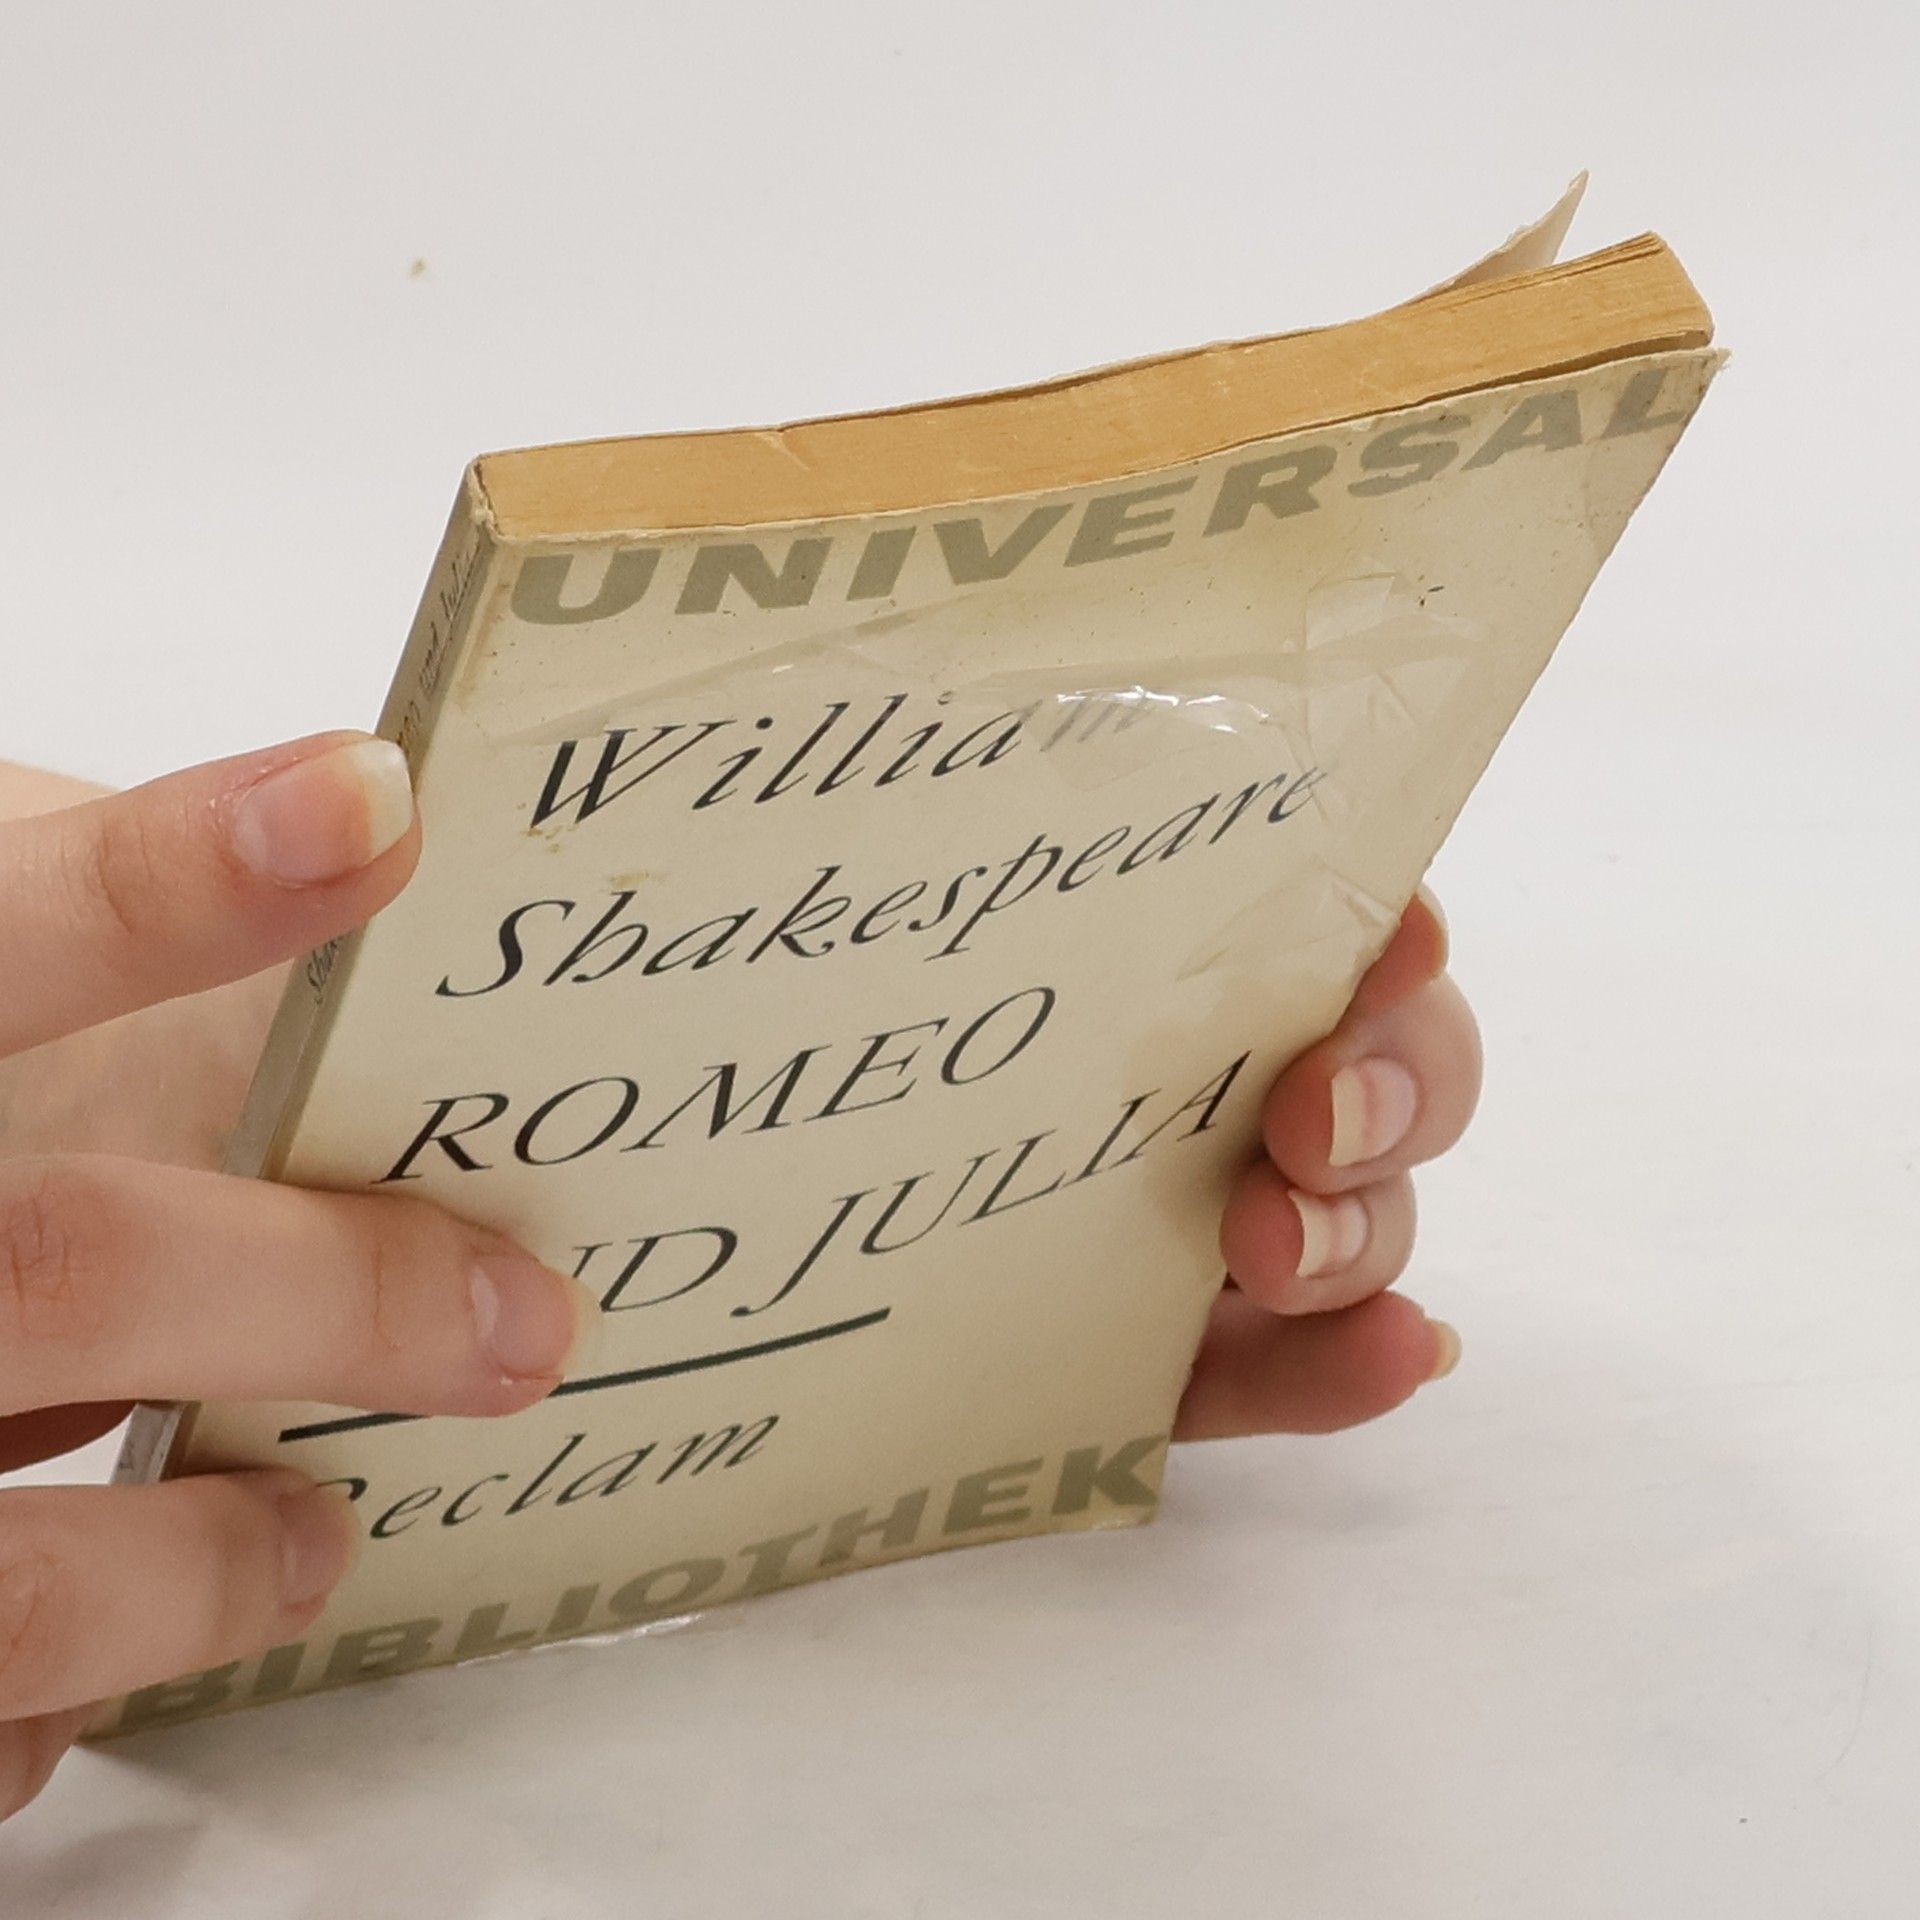 UNIVERSAL
William
Shakespeare
ROMEO
UND JULIA
Reclam
BIBLIOTHEK
und Julia